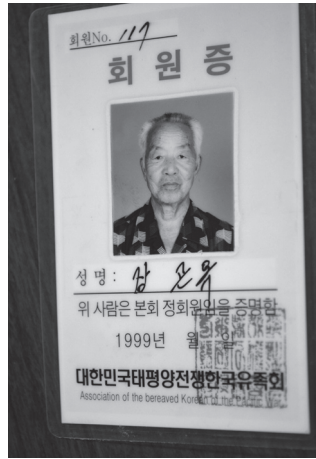 회원No. 117
회원증
성명:
위 사람은 본회 정회원임을 증명함
1999년 월 일
대한민국태평양전쟁한국유족회
Association of the bereaved Korean to the Pacific War